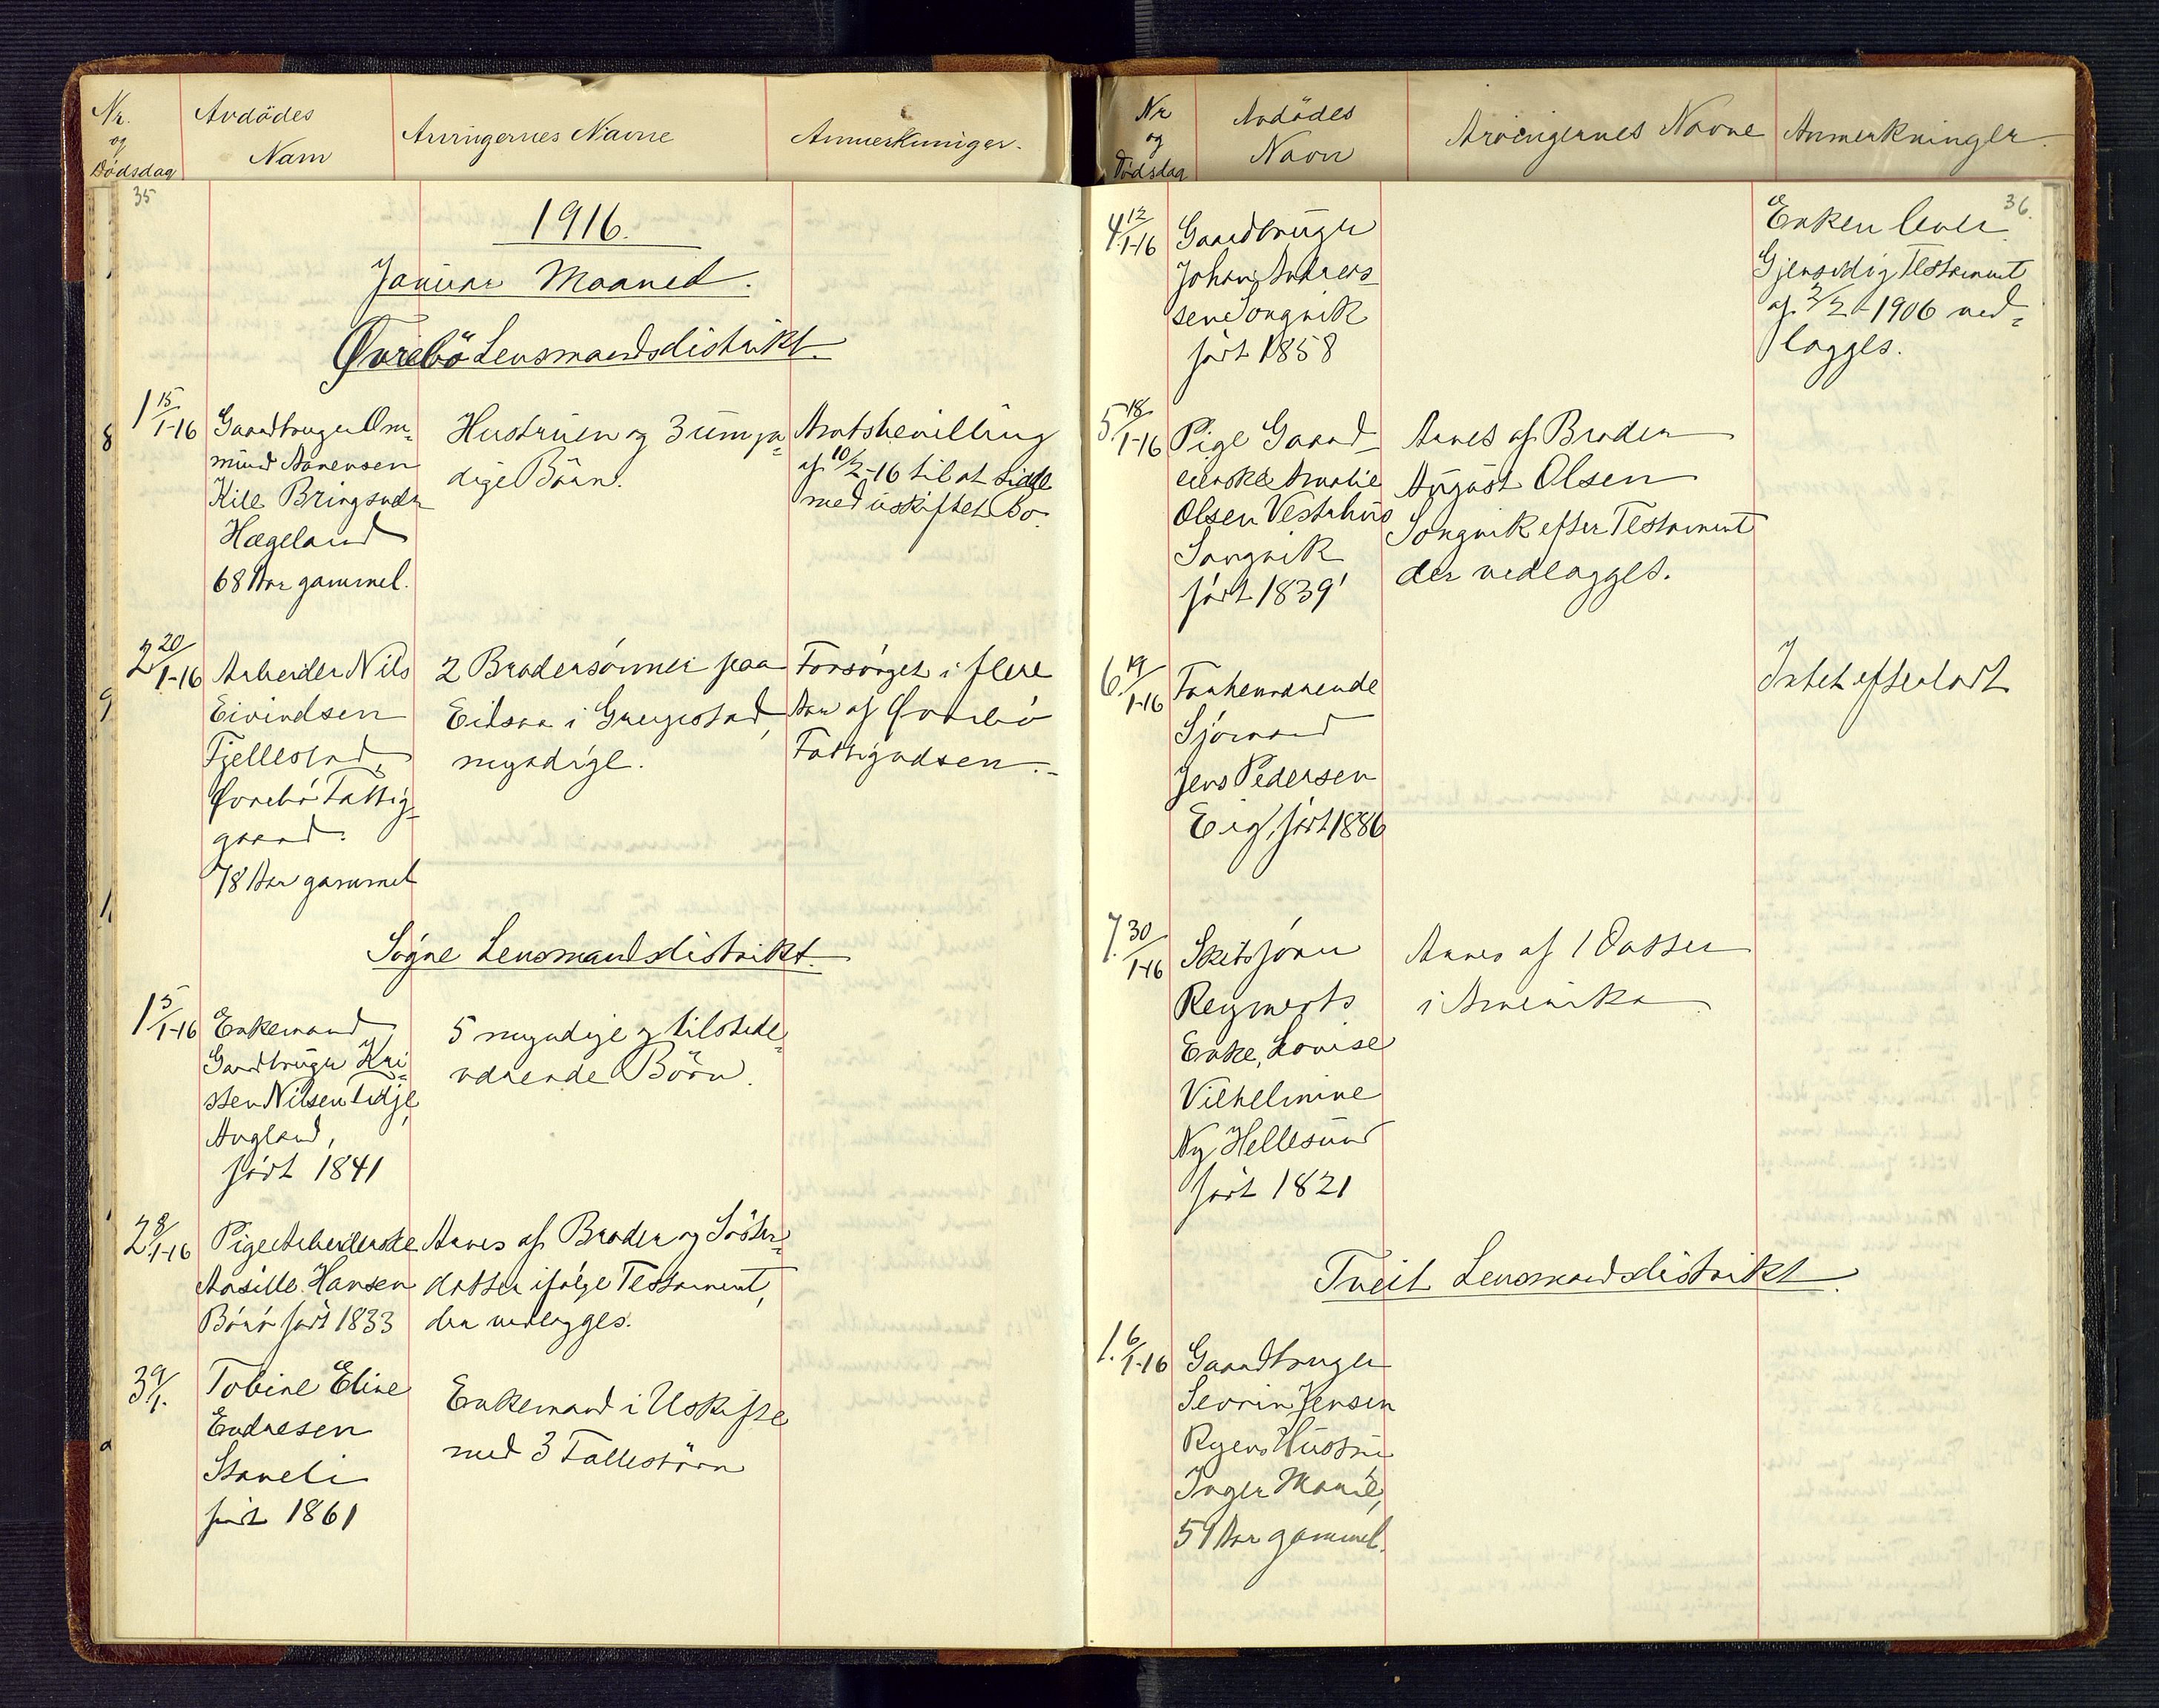 Nr.
og
Dödsdag
Avdödes
Navn
Arvingernes Navne
Anmerkninger.
35
1916.
Januar Maaned.
Øvrebö Lensmandsdistrikt.
1 15/1-16
Gaardbruger Om-
mund Aanensen
Kile Bringsvær
Hægeland
68 Aar gammel.
Hustruen og 3 umyn-
dige Börn.
Amtsbevilling
af 10/2-16 til at sidde
med uskiftet Bo.
2 20/1-16
Arbeider Nils
Eivindsen
Fjellestad,
Øvrebö Fattig-
gaard.
78 Aar gammel
2 Brodersönner paa
Eikeraa i Greipstad,
myndige.
Forsörget i flere
Aar af Øvrebö
Fattigvæsen.
Sögne Lensmandsdistrikt.
1 5/1-16
Enkemand
Gaardbruger Kri-
sten Nilsen Lidje,
Augland,
födt 1841
5 myndige og tilstede-
værende Börn.
2 8/1-16
Pige Arbeiderske
Aasille Hansen
Börö födt 1833
Arves af Broder og Söster-
datter ifölge Testament,
der vedlægges.
3 9/1.
Tobine Eline
Andresen
Stareli
födt 1861
Enkemand i Uskifte
med 3 Fællesbörn
Nr
og
Dödsdag
Avdödes
Navn
Arvingernes Navne
Anmerkninger.
36.
4 12/1-16
Gaardbruger
Johan Andreas-
sen Songvik
födt 1858
Enken lever.
Gjensidig Testament
af 2/2 1906 ved-
lægges.
5 18/1-16
Pige Gaard-
eierske Amalie
Olsen Vestrhus
Songvik
födt 1839
Arves af Broder
August Olsen
Songvik efter Testament
der vedlægges.
6. 19/1-16
Forhenværende
Sjömand
Jens Pedersen
Eig, födt 1886
Intet efterladt
7. 30/1-16
Skibsförer
Reymerts
Enke, Lovise
Vilhelmine
Ny Hellesund
födt 1821
Arves af 1 Datter
i Amerika
Tveit Lensmandsdistrikt.
1. 6/1-16
Gaardbruger
Sevrin Jensen
Ryens Hustru
Inger Marie,
54 Aar gammel.